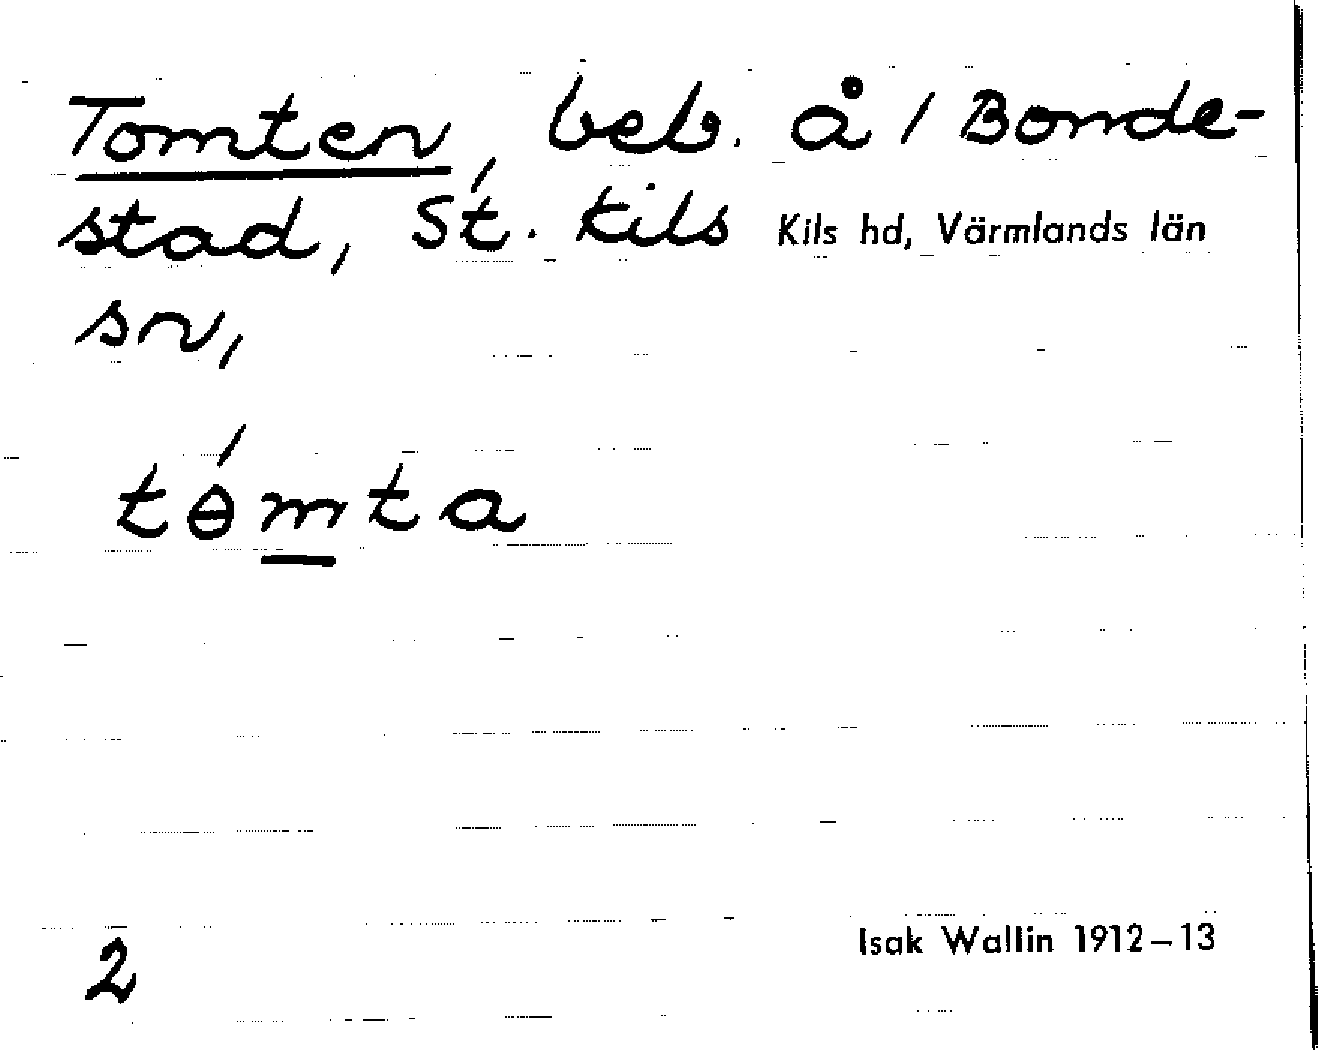 Tomten, beb. å 1 Bonde-
stad, St. Kils Kils hd, Värmlands län
sn,
tɵ́mta
2
Isak Wallin 1912–13